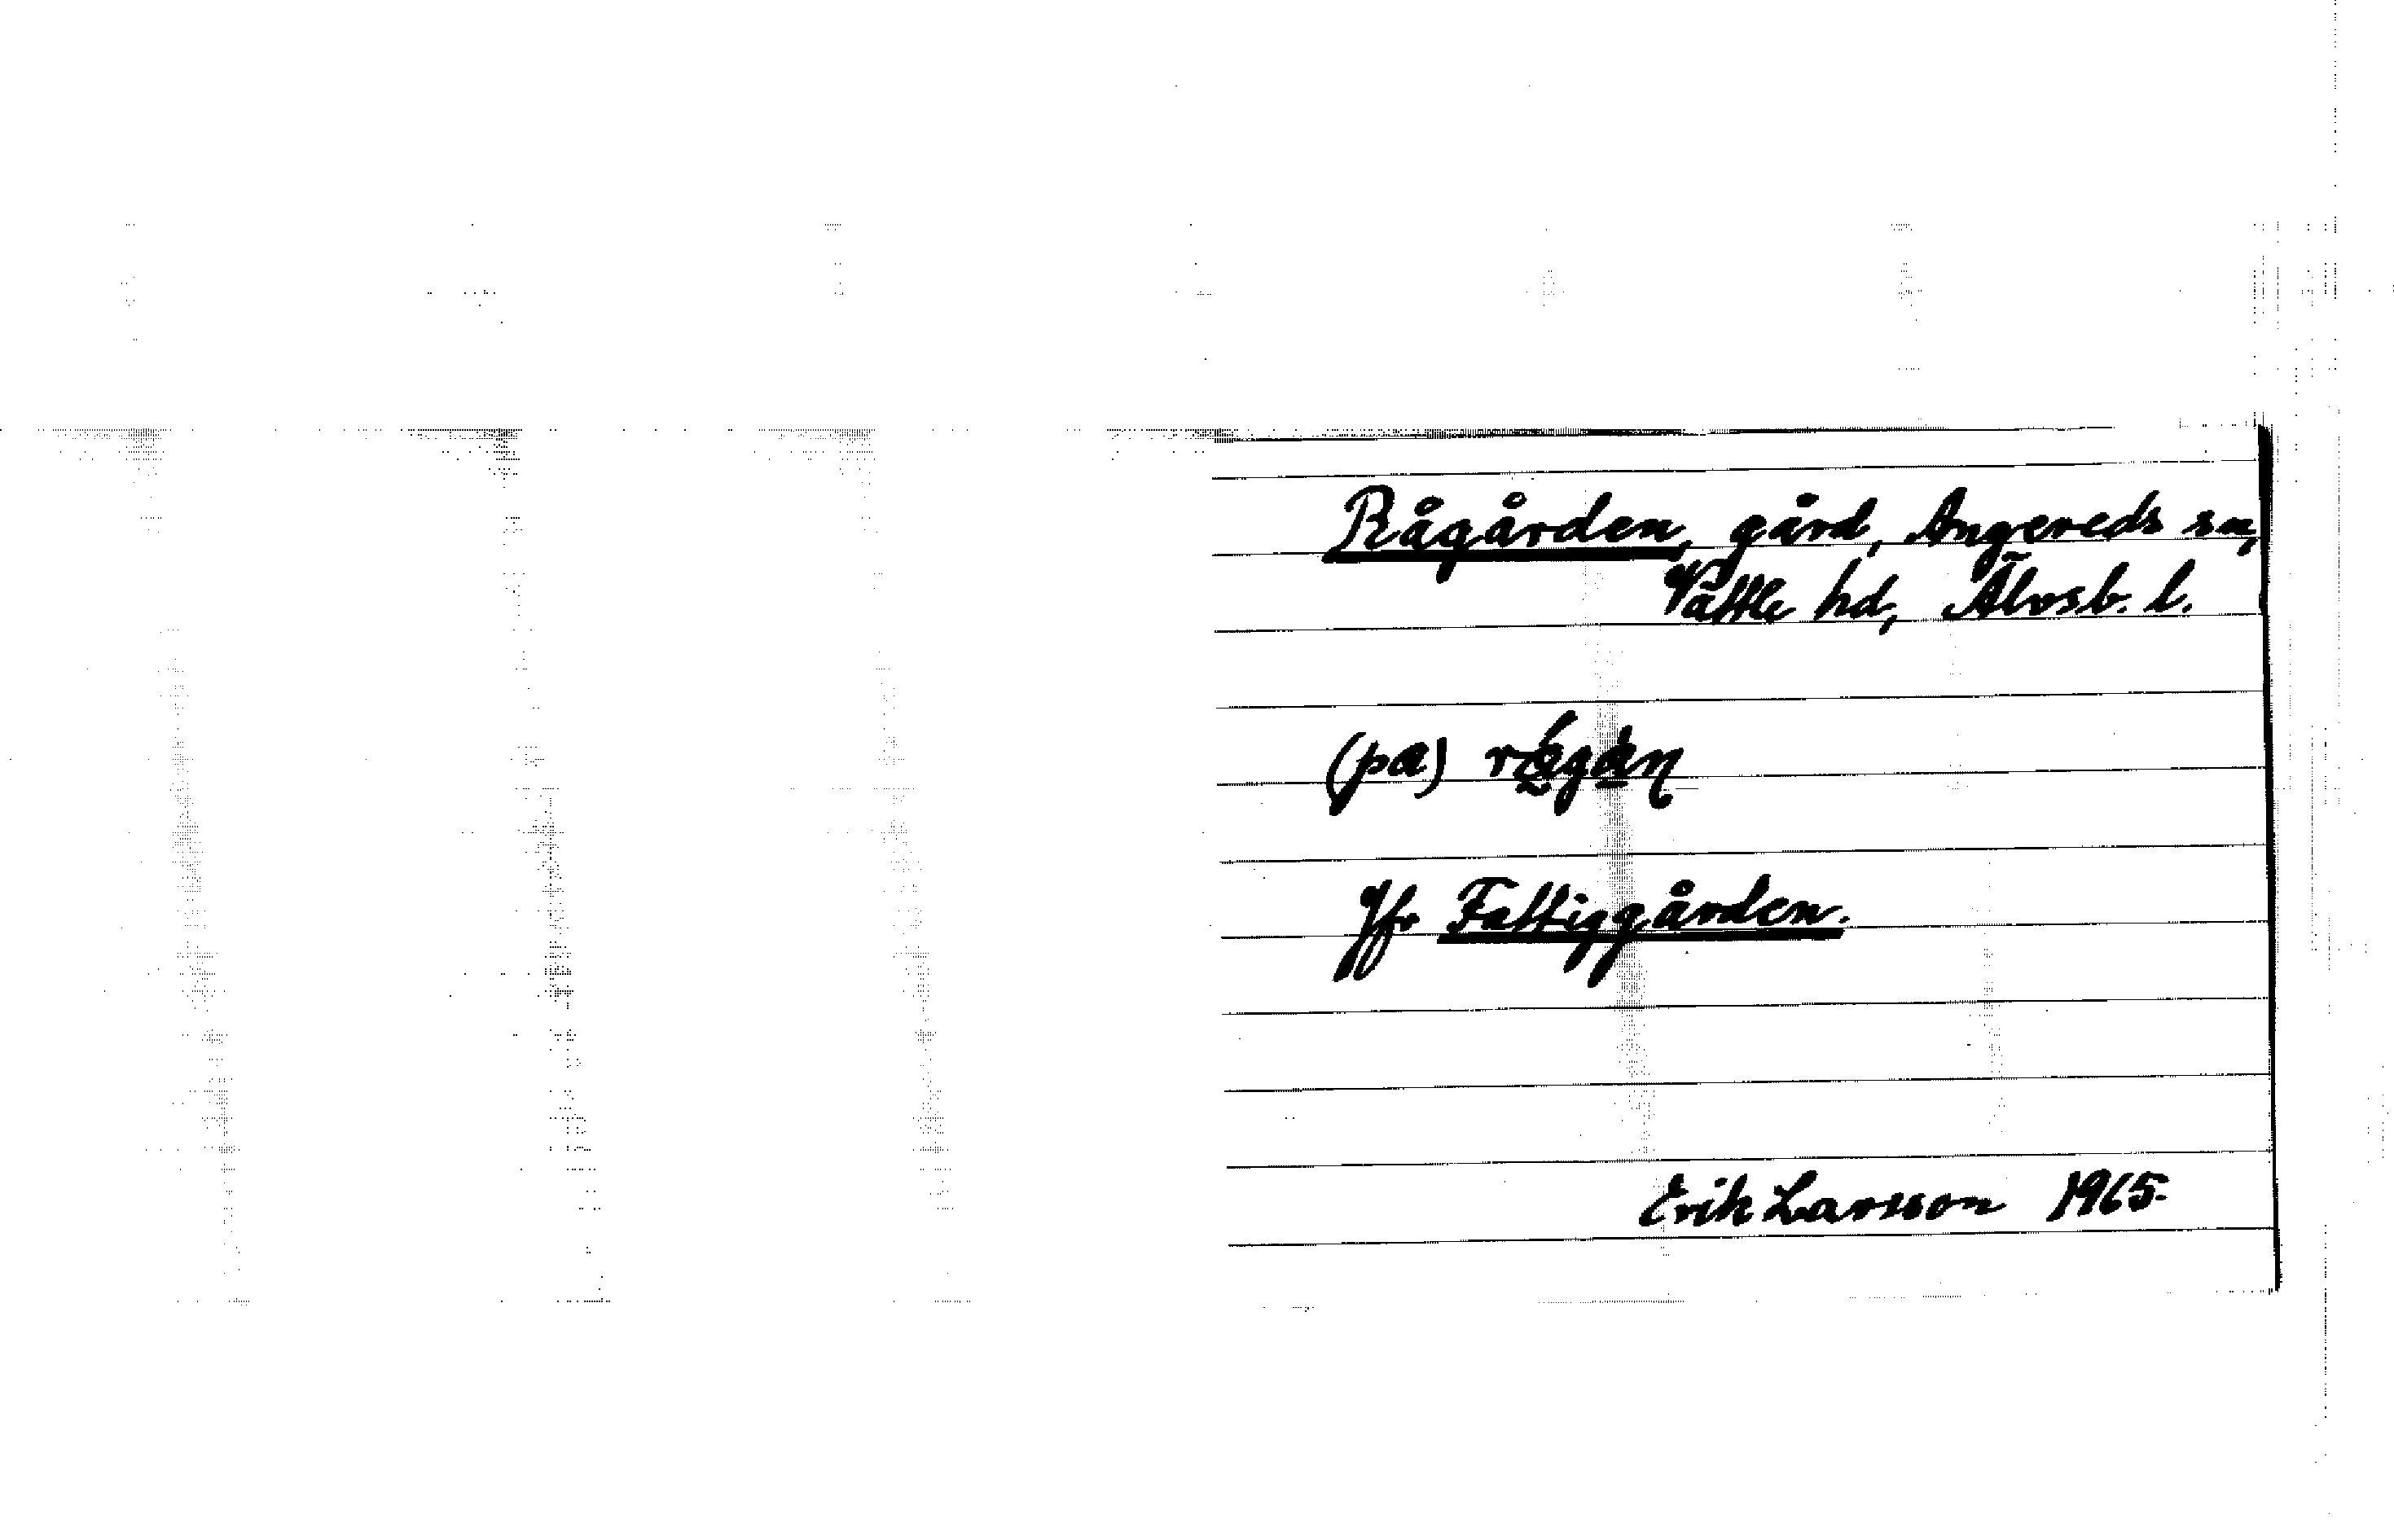 Rågården, gård, Angereds sn,
Vättle hd, Älvsb. l.
(pa)
Jfr Fattiggården.
Erik Larsson 1965.